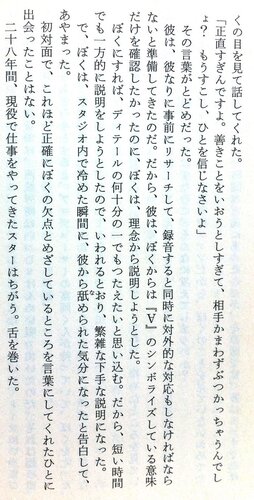 くの目を見て話してくれた。
「正直すぎんですよ。善きことをいおうとしすぎて、相手かまわずぶつかっちゃうんでし
ょ？　もうすこし、ひとを信じなさいよ」
その言葉がとどめだった。
彼は、彼なりに事前にリサーチして、録音すると同時に対外的な対応もしなければなら
ないと準備してきたのだ。だから、彼は、ぼくからは『∀』のシンボライズしている意味
だけを確認したかったのに、ぼくは、理念から説明しようとした。
ぼくにすれば、ディテールの何十分の一でもつたえたいと思い込む。だから、短い時間
でも一方的に説明をしようとしたので、いわれるとおり、繁雑な下手な説明になった。
で、ぼくは、スタジオ内で冷めた瞬間に、彼から舐められた気分になったと告白して、
あやまった。
初対面で、これほど正確にぼくの欠点とめざしているところを言葉にしてくれたひとに
出会ったことはない。
二十八年間、現役で仕事をやってきたスターはちがう。舌を巻いた。